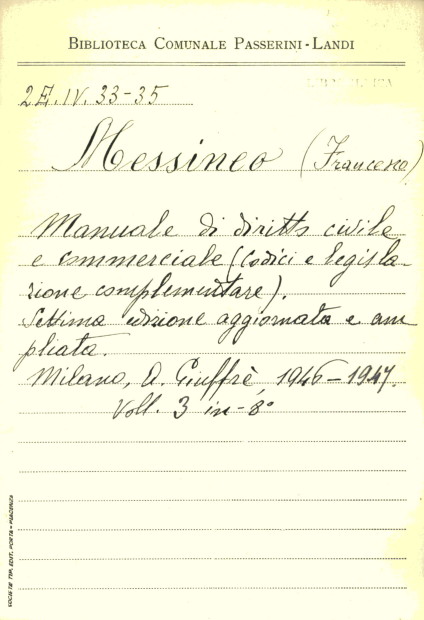 BIBLIOTECA COMUNALE PASSERINI-LANDI
2Z. IV. 33-35
Messineo (Francesco)
Manuale di diritto civile
e commerciale (Codici e legisla-
zione complementare).
Settima edizione aggiornata e am
pliata.
Milano, A. Giuffrè, 1946-1947.
Voll. 3 in-8°
SOCIETÀ TIP. EDIT. PORTA - PIACENZA